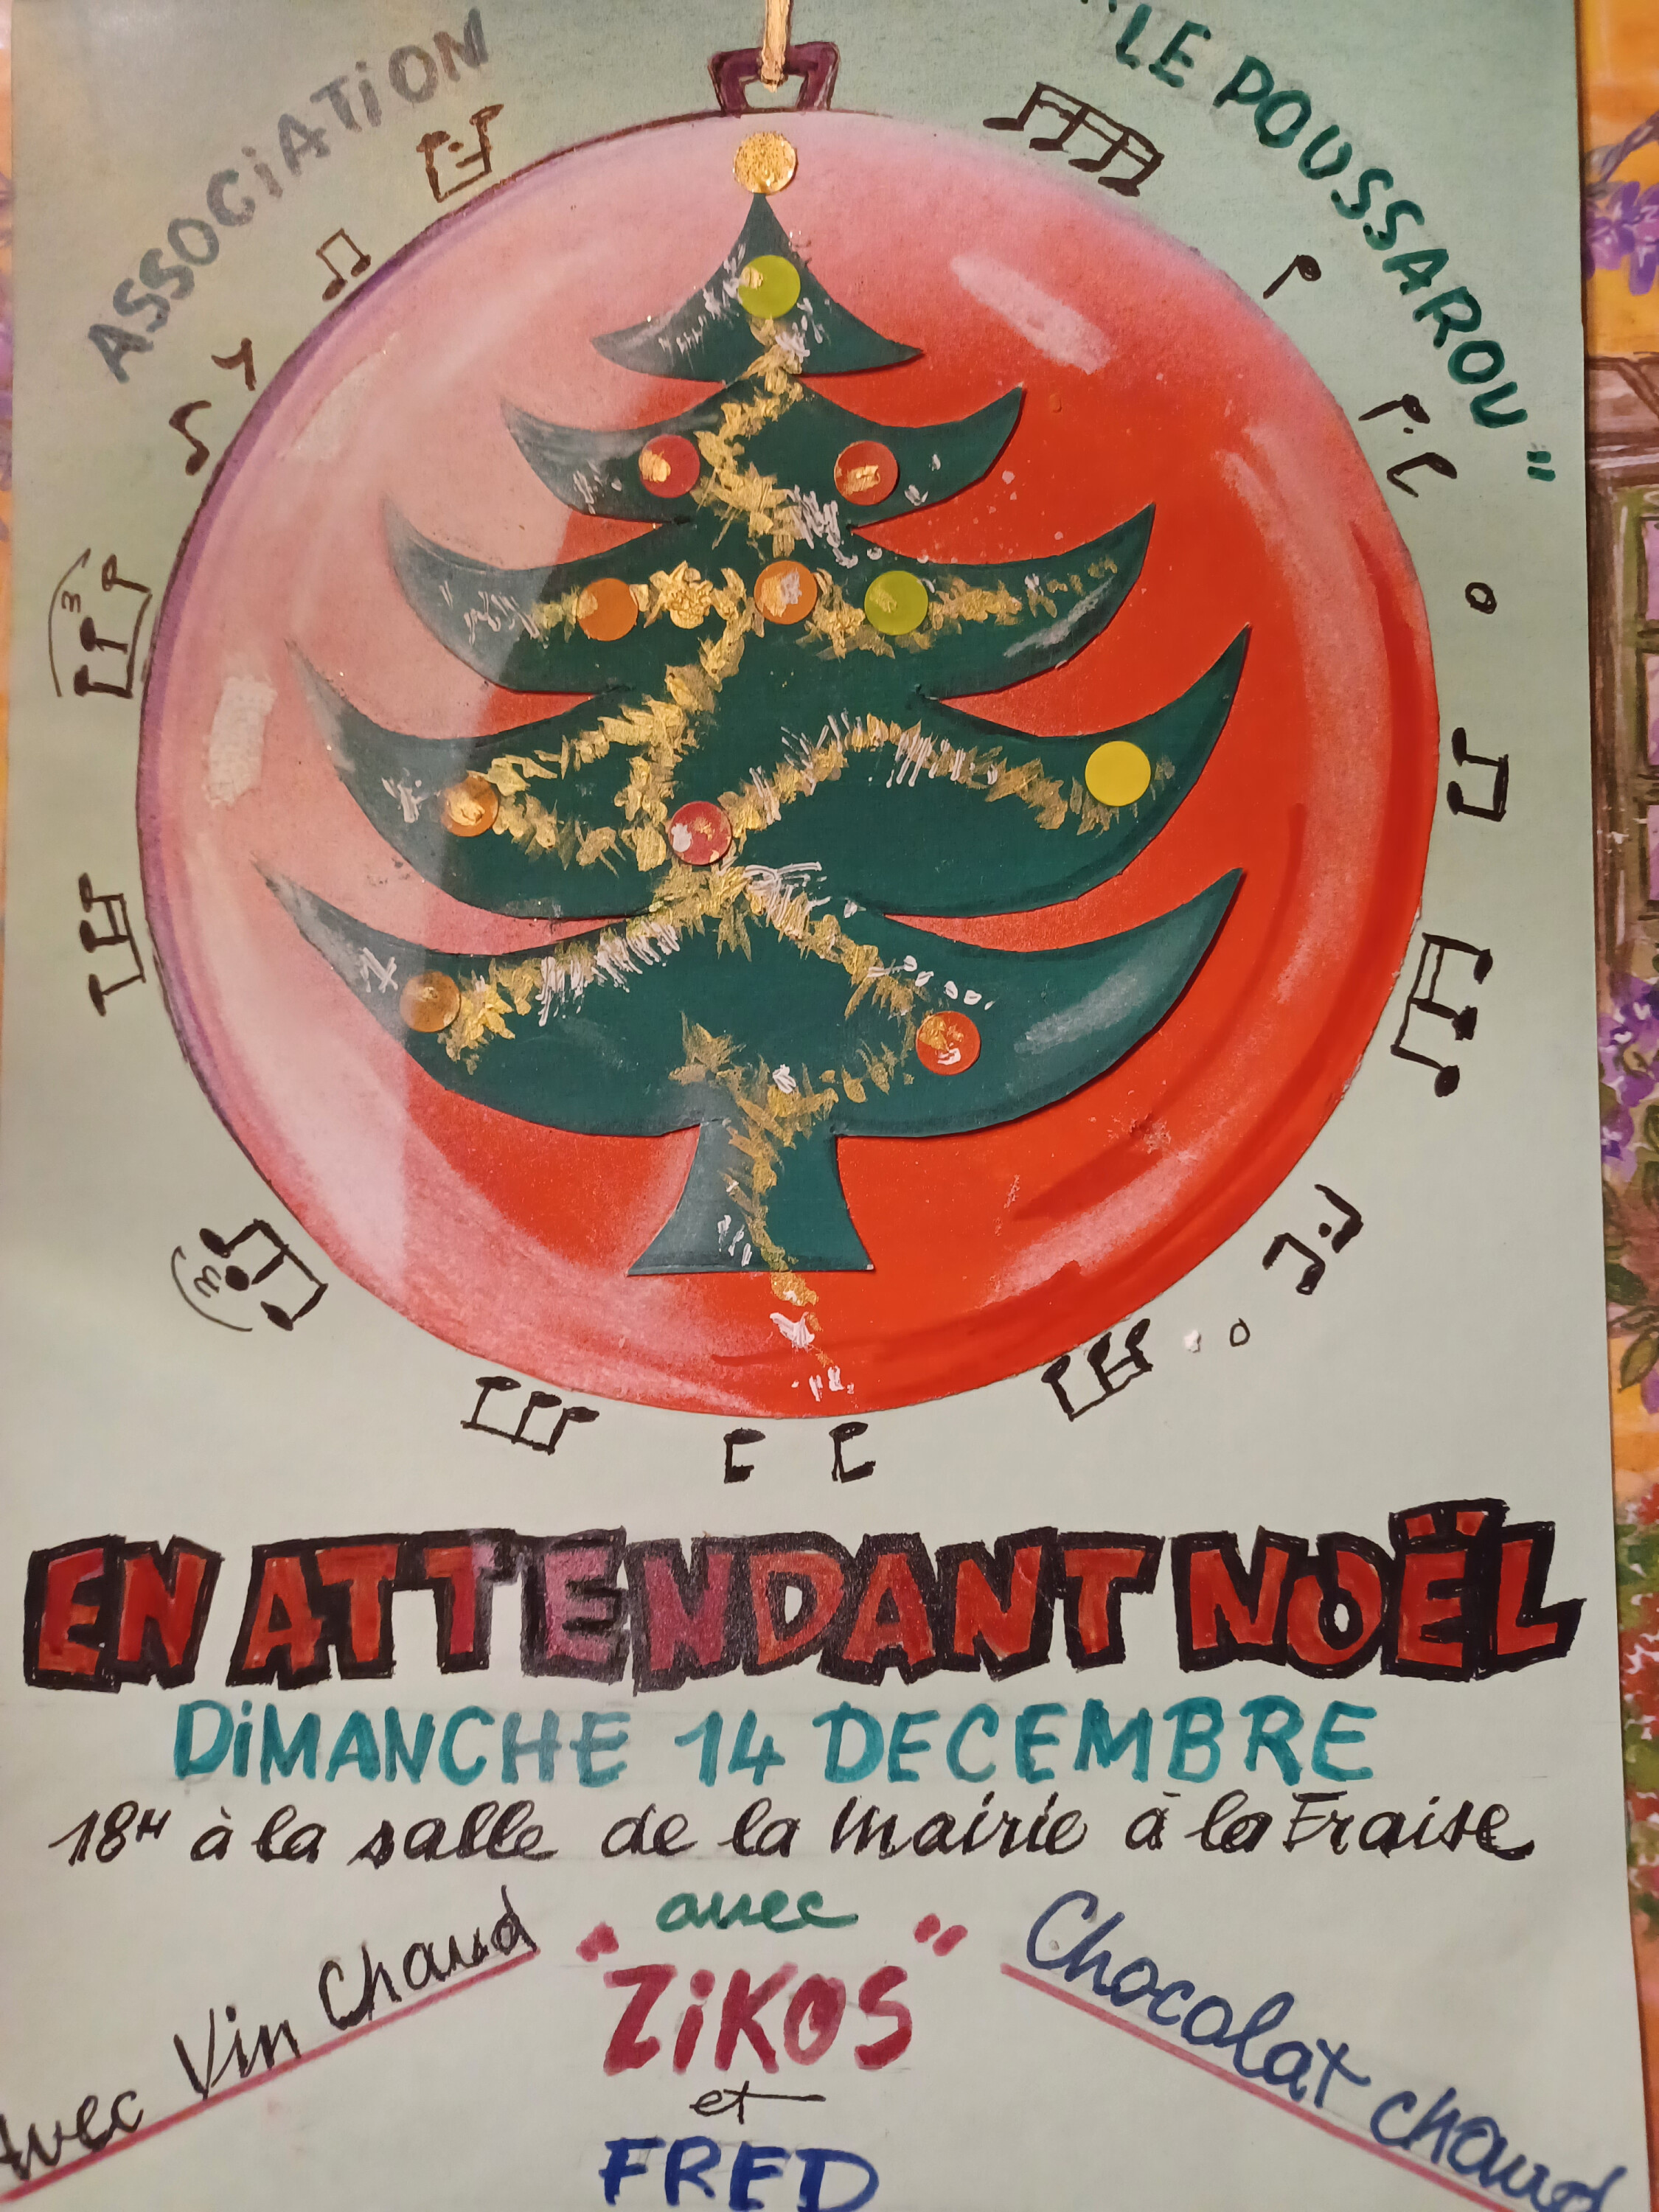 ASSOCIATION
"LE POUSSAROU"
EN ATTENDANT NOËL
DIMANCHE 14 DECEMBRE
18H à la salle de la Mairie à la Fraise
avec
"ZIKOS"
et
FRED
Avec Vin Chaud
Chocolat chaud